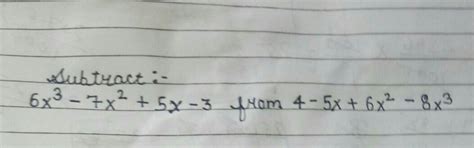 Subtract :-
6x³ - 7x² + 5x - 3 from 4 - 5x + 6x² - 8x³